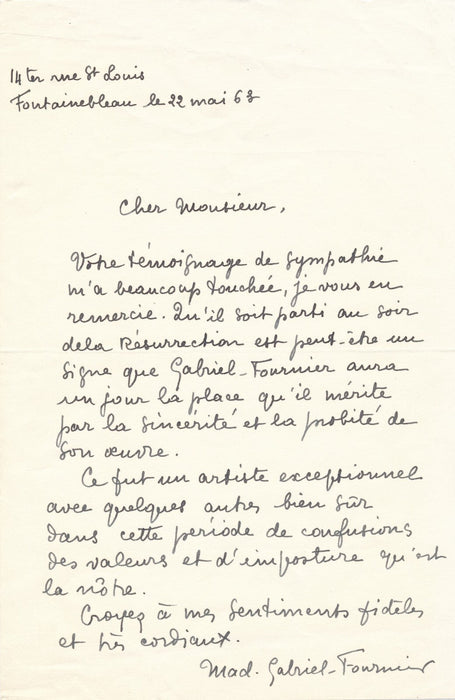 14 ter rue St Louis
Fontainebleau le 22 mai 63
Cher Monsieur,
Votre témoignage de sympathie
m'a beaucoup touchée, je vous en
remercie. Qu'il soit parti au soir
de la Résurrection est peut-être un
signe que Gabriel-Fournier aura
un jour la place qu'il mérite
par la sincérité et la probité de
son œuvre.
Ce fut un artiste exceptionnel
avec quelques autres bien sûr
dans cette période de confusions
des valeurs et d'imposture qu'est
la nôtre.
Croyez à mes sentiments fidèles
et très cordiaux.
Mad. Gabriel-Fournier